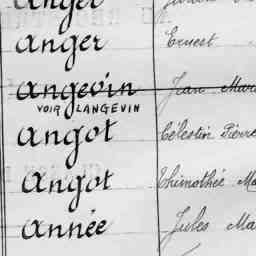 Anger
Anger Ernest
Angevin Jean
VOIR LANGEVIN
Angot Célestin Pierre
Angot Thimothée
Année Jules